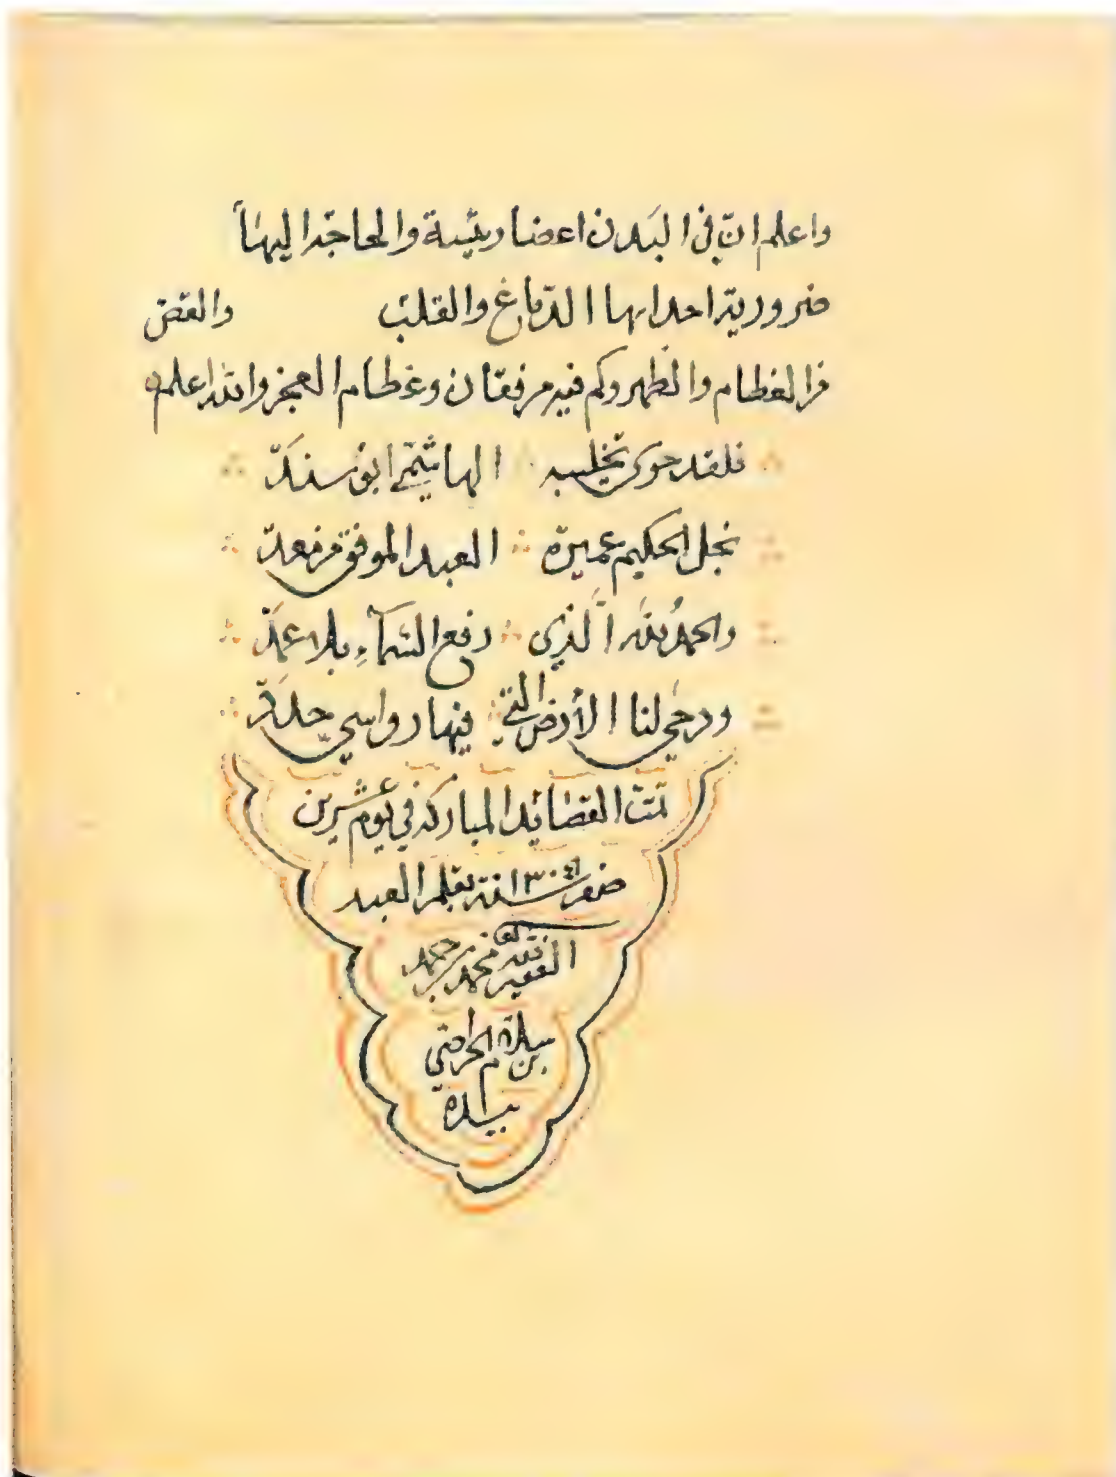 واعلم ان في البدن اعضا رئيسة والحاجة اليها
ضرورية احدايها الدماغ والقلب والقض
من العظام والظهر وكم فيه مرفقان وعظام العجز والله اعلم
فلقد حوى الهاشمي ابن سند
نجل الحكيم عميرة العبد الموفق من معد
والحمد لله الذي رفع السماء بلا عمد
ودحى لنا الأرض التي فيها رواسي جدد
تمت القصائد المباركة في يوم عشرين
صفر سنة بقلم العبد
الفقير لله محمد بن حمد
بن سلام
بيده